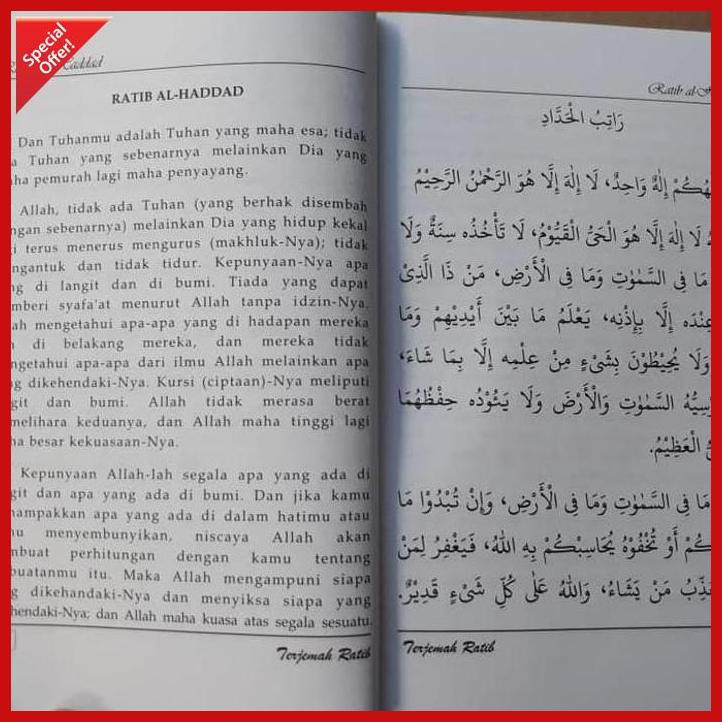 Special
Offer!
RATIB AL-HADDAD
Dan Tuhanmu adalah Tuhan yang maha esa; tidak
Tuhan yang sebenarnya melainkan Dia yang
pemurah lagi maha penyayang.
Allah, tidak ada Tuhan (yang berhak disembah
sebenarnya) melainkan Dia yang hidup kekal
terus menerus mengurus (makhluk-Nya); tidak
dan tidak tidur. Kepunyaan-Nya apa
di langit dan di bumi. Tiada yang dapat
syafa'at menurut Allah tanpa idzin-Nya.
mengetahui apa-apa yang di hadapan mereka
di belakang mereka, dan mereka tidak
apa-apa dari ilmu Allah melainkan apa
dikehendaki-Nya. Kursi (ciptaan)-Nya meliputi
dan bumi. Allah tidak merasa berat
keduanya, dan Allah maha tinggi lagi
besar kekuasaan-Nya.
Kepunyaan Allah-lah segala apa yang ada di
dan apa yang ada di bumi. Dan jika kamu
apa yang ada di dalam hatimu atau
menyembunyikan, niscaya Allah akan
perhitungan dengan kamu tentang
itu. Maka Allah mengampuni siapa
dikehandaki-Nya dan menyiksa siapa yang
dan Allah maha kuasa atas segala sesuatu.
Terjemah Ratib
Ratib
رَاتِبُ الْحَدَّادِ
إِلٰهٌ وَاحِدٌ، لَا إِلٰهَ إِلَّا هُوَ الرَّحْمٰنُ الرَّحِيْمُ
لَا إِلٰهَ إِلَّا هُوَ الْحَيُّ الْقَيُّوْمُ، لَا تَأْخُذُه سِنَةٌ وَلَا
مَا فِى السَّمٰوٰتِ وَمَا فِى الْأَرْضِ، مَنْ ذَا الَّذِىْ
عِنْدَه إِلَّا بِإِذْنِه، يَعْلَمُ مَا بَيْنَ أَيْدِيْهِمْ وَمَا
وَلَا يُحِيْطُوْنَ بِشَىْءٍ مِنْ عِلْمِه إِلَّا بِمَا شَاءَ،
السَّمٰوٰتِ وَالْأَرْضَ وَلَا يَئُوْدُه حِفْظُهُمَا
الْعَظِيْمُ.
مَا فِى السَّمٰوٰتِ وَمَا فِى الْأَرْضِ، وَإِنْ تُبْدُوْا مَا
أَوْ تُخْفُوْهُ يُحَاسِبْكُمْ بِهِ اللهُ، فَيَغْفِرُ لِمَنْ
مَنْ يَشَاءُ، وَاللهُ عَلٰى كُلِّ شَىْءٍ قَدِيْرٌ.
Terjemah Ratib